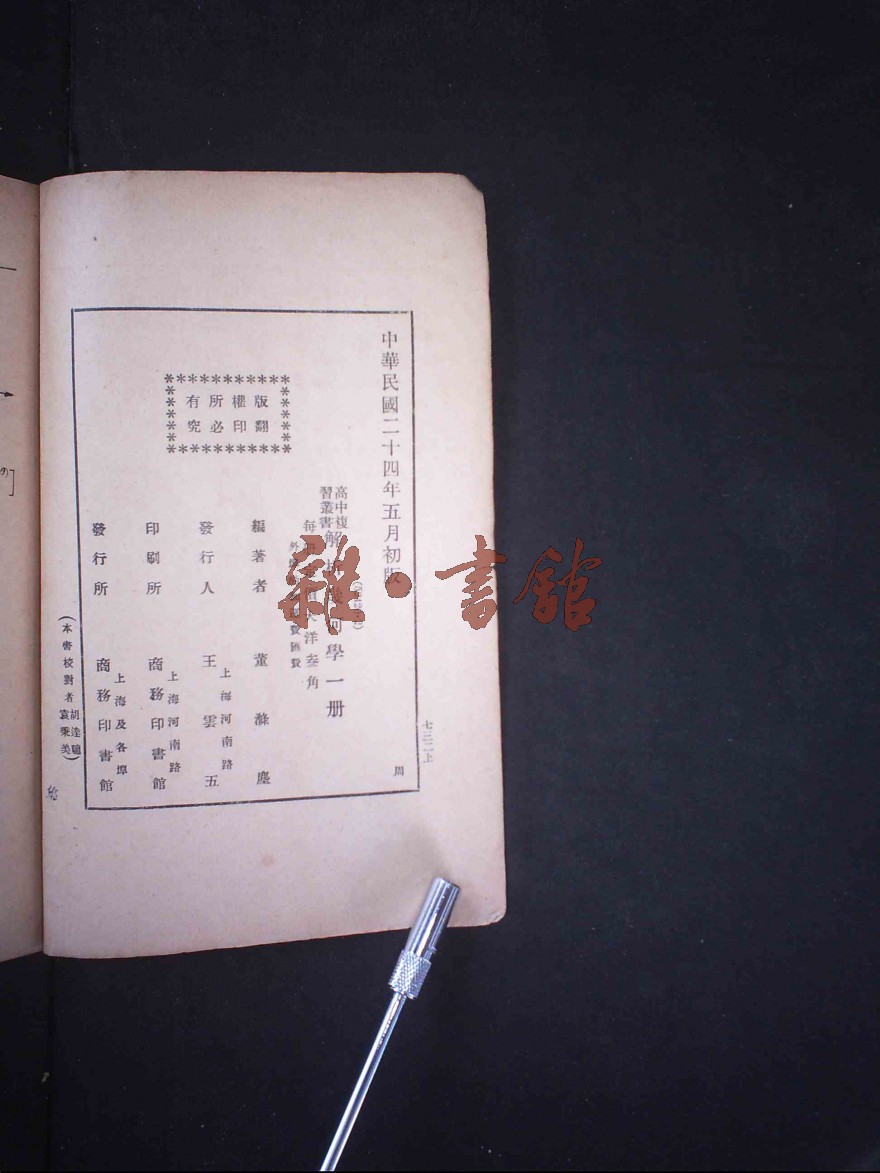 中華民國二十四年五月初版
周
七三二上
版權所有
翻印必究
高中複習叢書
解 幾何學一册
每 洋叁角
外 費匯費
編著者 董滌塵
發行人 王雲五
上海河南路
印刷所 商務印書館
上海河南路
發行所 商務印書館
上海及各埠
(本書校對者 胡逵 袁秉美)
雜·書館